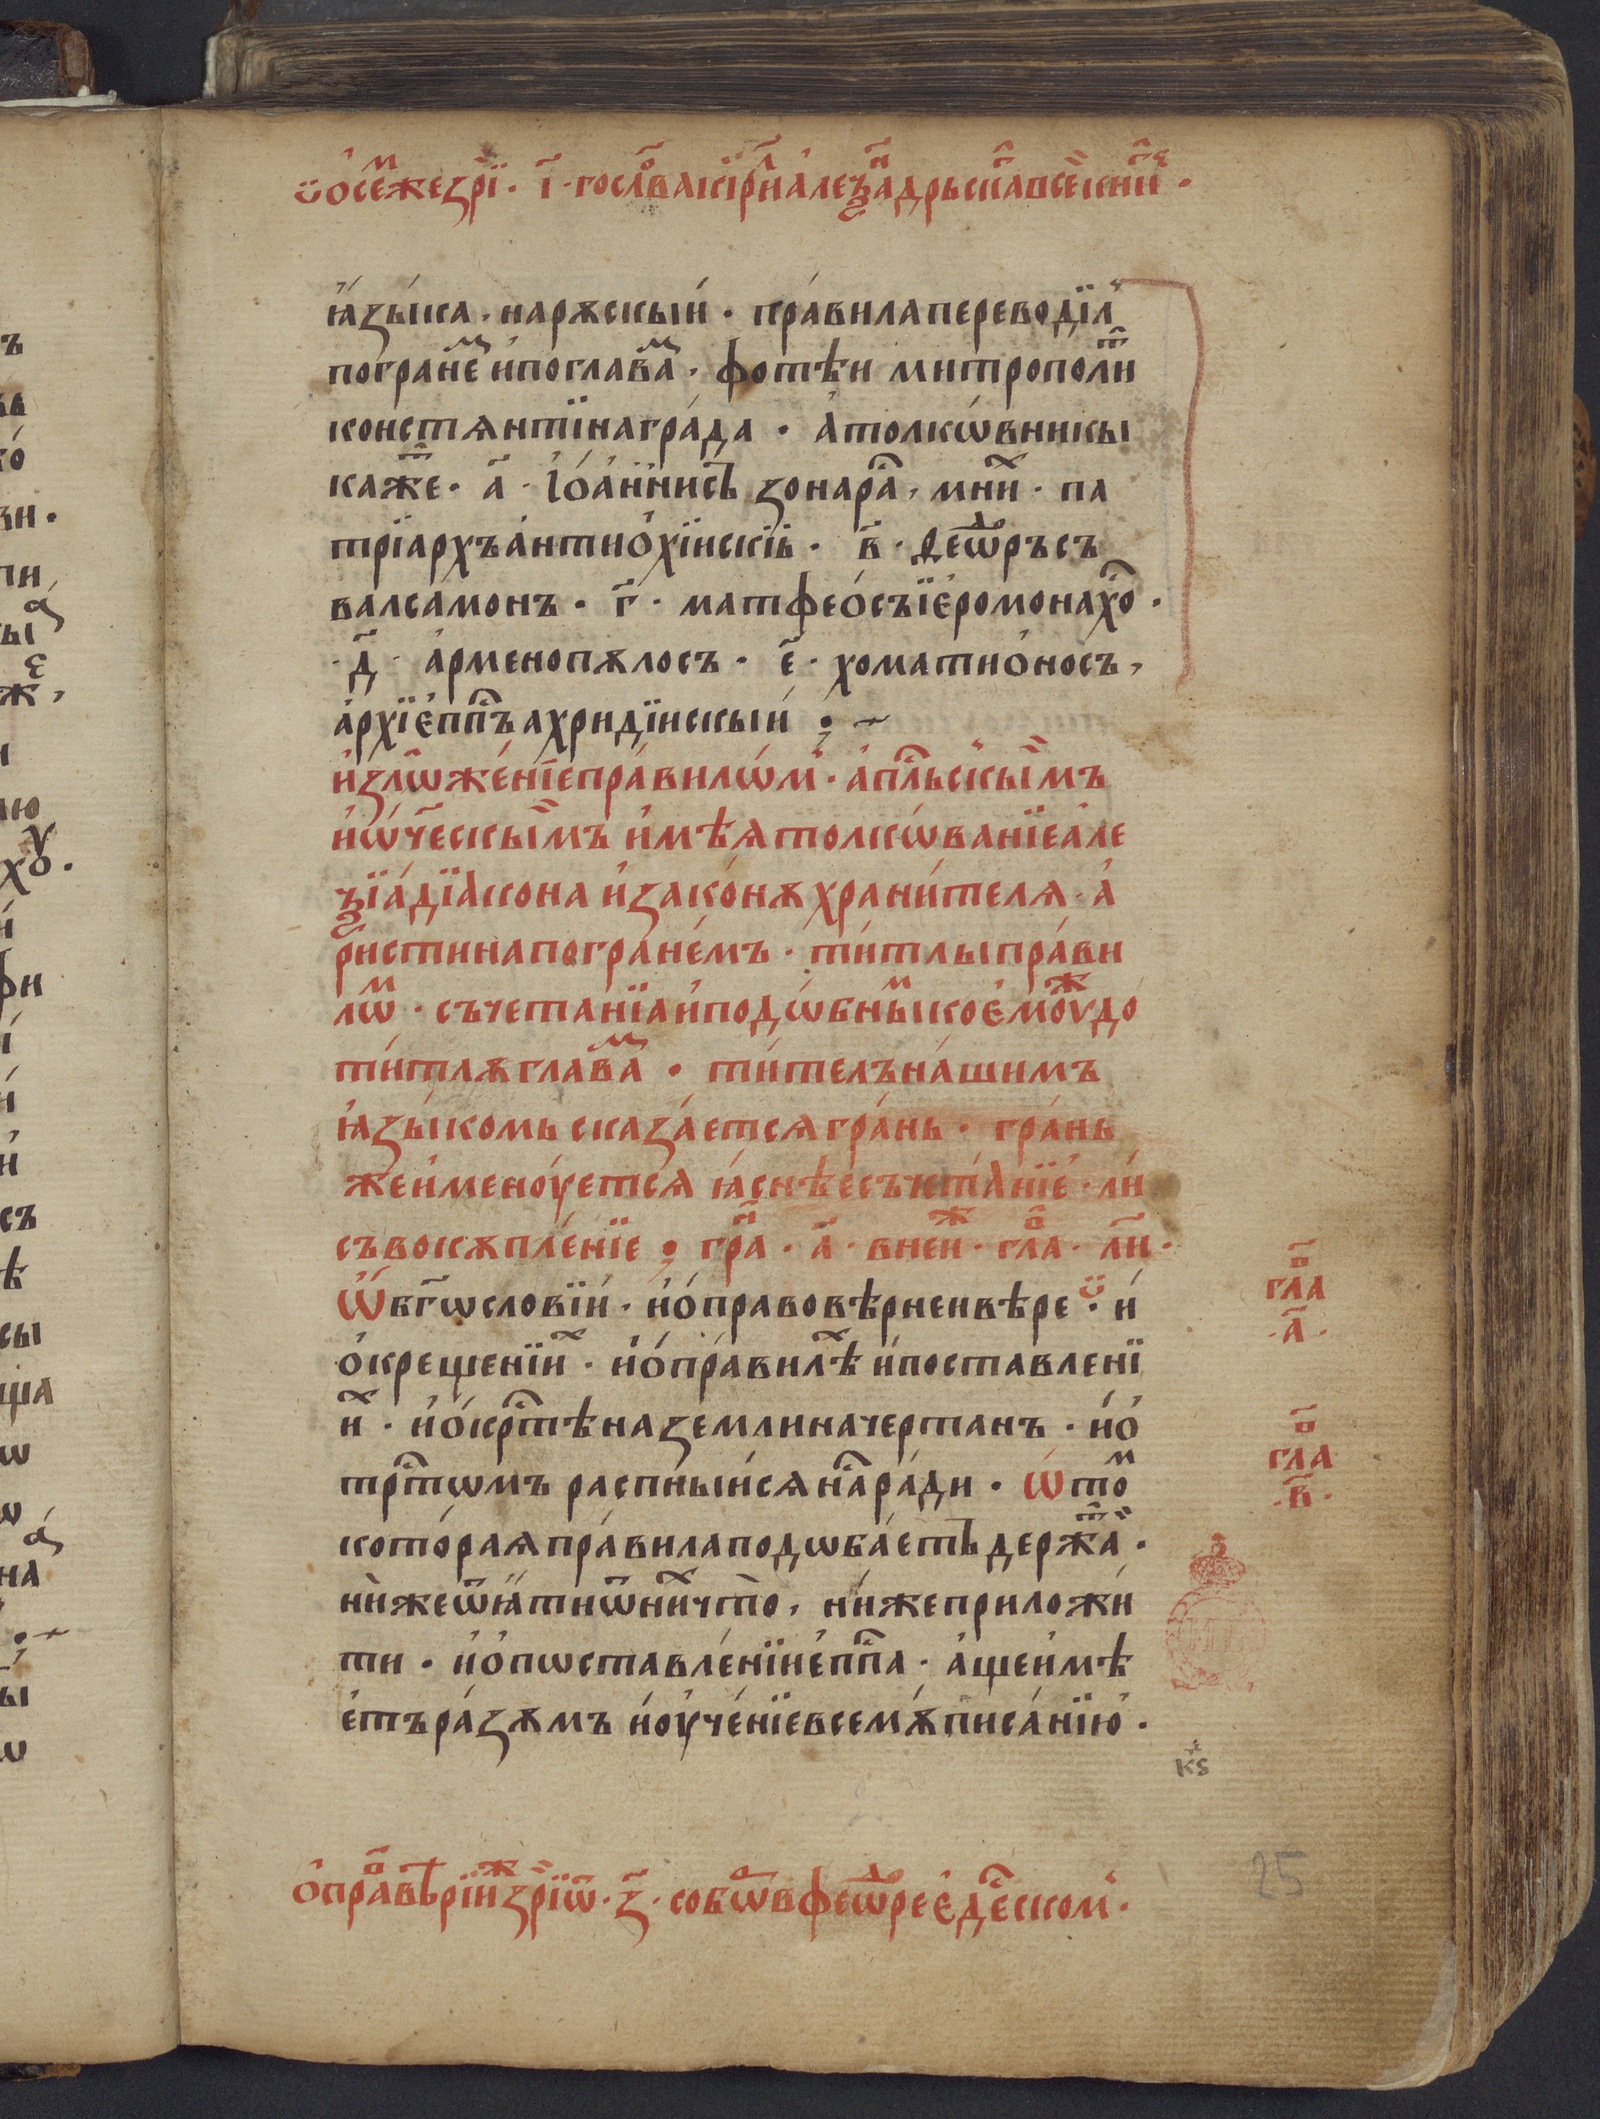 ѡ҆ се́мже зрѝ · і҃ · го сло́ва кири́ла але҆ѯа҆ндрьска въсе́и кни́ ·
ꙗ҆зы́ка , на рѫскы́и · пра́вила переводи́л
по гране́м и҆ по глава́м , фотѣ́и митрополи́т
констѧнти́награда · а҆ толкѡ́вникы
ка́же · а҃ · і҆ѡа́ннисъ зонара , мни́х · па
трїархъ а҆нтиѻ҆хїискїи · в҃ · ѳеѡ҆́дръ съ
валсамонъ · г҃ · матфеосъ їе҆ромонахо ·
· д҃ · а҆рменопѫлосъ · е҃ · хоматиѻ҆носъ ,
а҆рхїе҆пп҃ъ ахридїискыи :~
и҆злѡже́нїе пра́вилѡ́м · а҆пльскы́мъ
и҆ ѡ҆ч҃ескы́мъ и҆мѣѧ толкѡ́ванїе а҆ле
ѯїа дїа҆кона и҆ закѻнѫ храни́телѧ · а҆
ристина по гране́мъ · ти́тлы пра́ви
лѡм · съчетанїа и҆ подѡ́бны́м коемоуждо
ти́тлѫ глава́м · ти́телъ на́шимъ
ꙗ҆зы́комь сказа́етсѧ гра́нь · гра́нь
же и҆мену́етсѧ ꙗ҆снѣе съчта́нїе · ли́
съвокѫпле́нїе ; гра́н · а҃ · в неи́ж · гла́в · л҃и ·
Ѡ҆ бг҃ѡслові́и · и҆ ѻ҆ правовѣрнеи вѣре · и҆
ѻ҆ креще́нїи́х · и҆ ѻ҆ пра́вилѣх и҆ поставленї
и́х · и҆ ѻ҆ крⷭ҇тѣ на земли начертанъ · и҆ ѻ҆
трⷭ҇тѡмъ распныисѧ наⷭ ра́ди · ѡ҆ то́м
кото́раѧ пра́вила подѡба́етъ держа́т ·
ни́же ѿѧти ѿ ни́х что̀ , ни́же приложи́
ти · и҆ ѻ҆ пѡставле́нїи е҆пⷭ҇па · а҆ще и҆мѣ
е҆тъ ра́зѫмъ и҆ ѹ҆че́нїе всемѫ писа́нїю ·
гла́в
· а҃ ·
гла́в
· в҃ ·
кѕ
25
ѻ҆ пра́вѣ вѣрїи́ж зрѝ ѿ · з҃ · собѡ́ра в феѡ́дре е҆де́сском ·